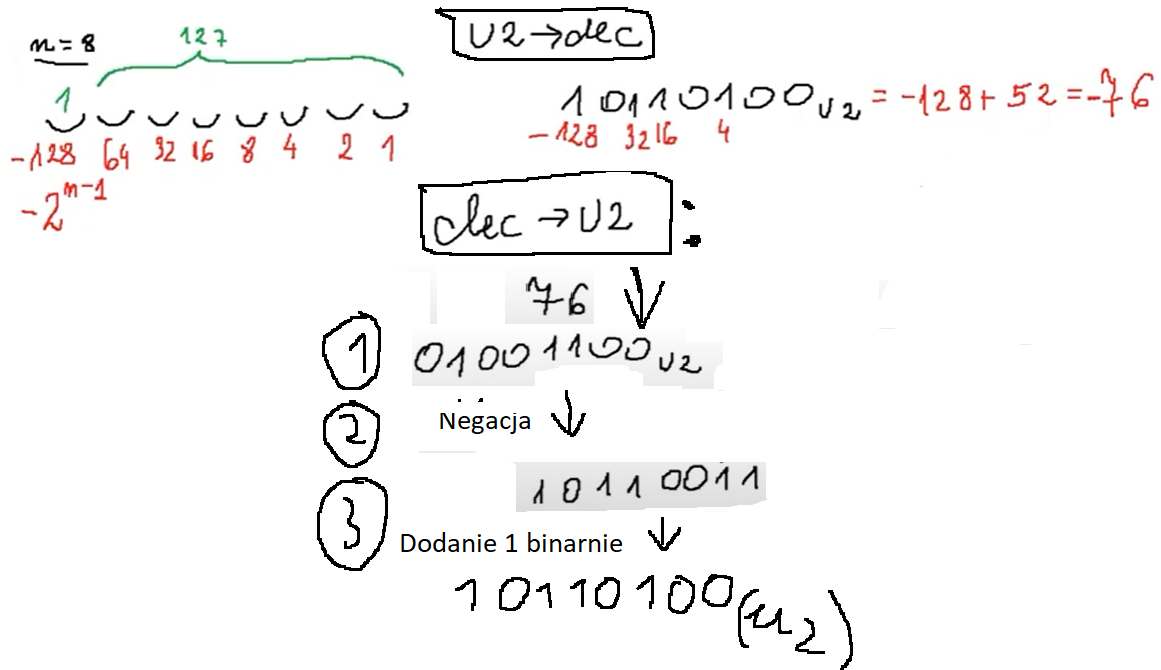 n = 8
127
1
-128 64 32 16 8 4 2 1
-2^(n-1)
U2→dec
10110100U2 = -128+ 52 = -76
-128 32 16 4
dec → U2 :
76
1 01001100U2
2 Negacja
10110011
3 Dodanie 1 binarnie
10110100(u2)